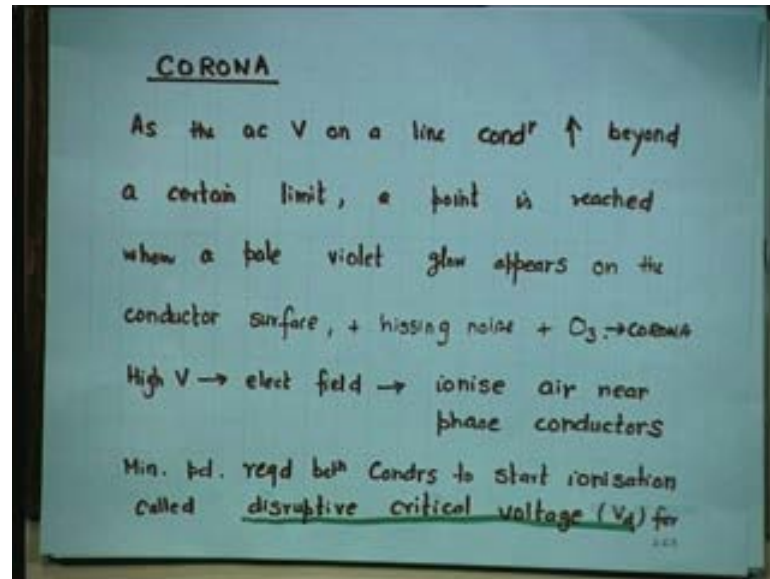 CORONA
As the ac V on a line condr ↑ beyond
a certain limit, a point is reached
when a pale violet glow appears on the
conductor surface, + hissing noise + O3 → CORONA
High V → elect field → ionise air near
phase conductors
Min. pd. reqd betn Condrs to start ionisation
called disruptive critical voltage (Vd) for